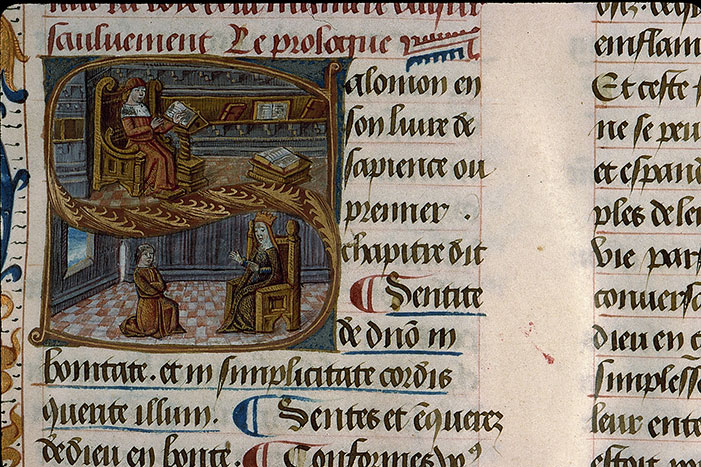 la voie de la maniere
sauluement Le prologue
Salomon en
son liure de
sapience ou
premier .
chapitre dit
¶ Sentite
de dn̄o in
bonitate. et in simplicitate cordis
querite illum. ¶ Sentes et ēquerez
de dieu en bonte. ¶ Conformes
emflam
Et ceste
ne se peu
et espand
ples de leu
vie par
conuersa
dieu en
simplesse
leur ente
estoit